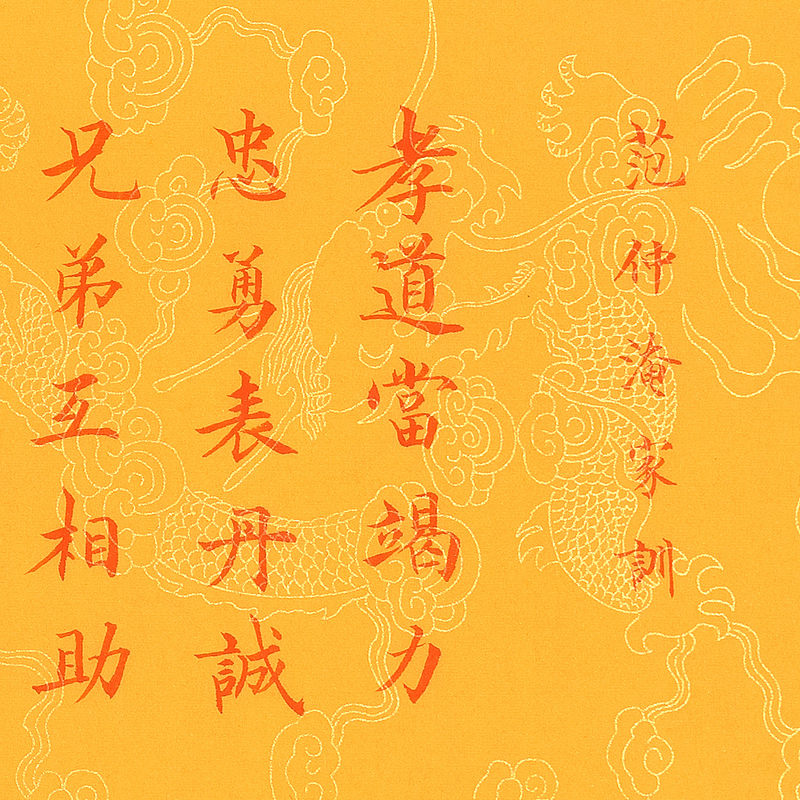 范仲淹家訓
孝道當竭力
忠勇表丹誠
兄弟互相助